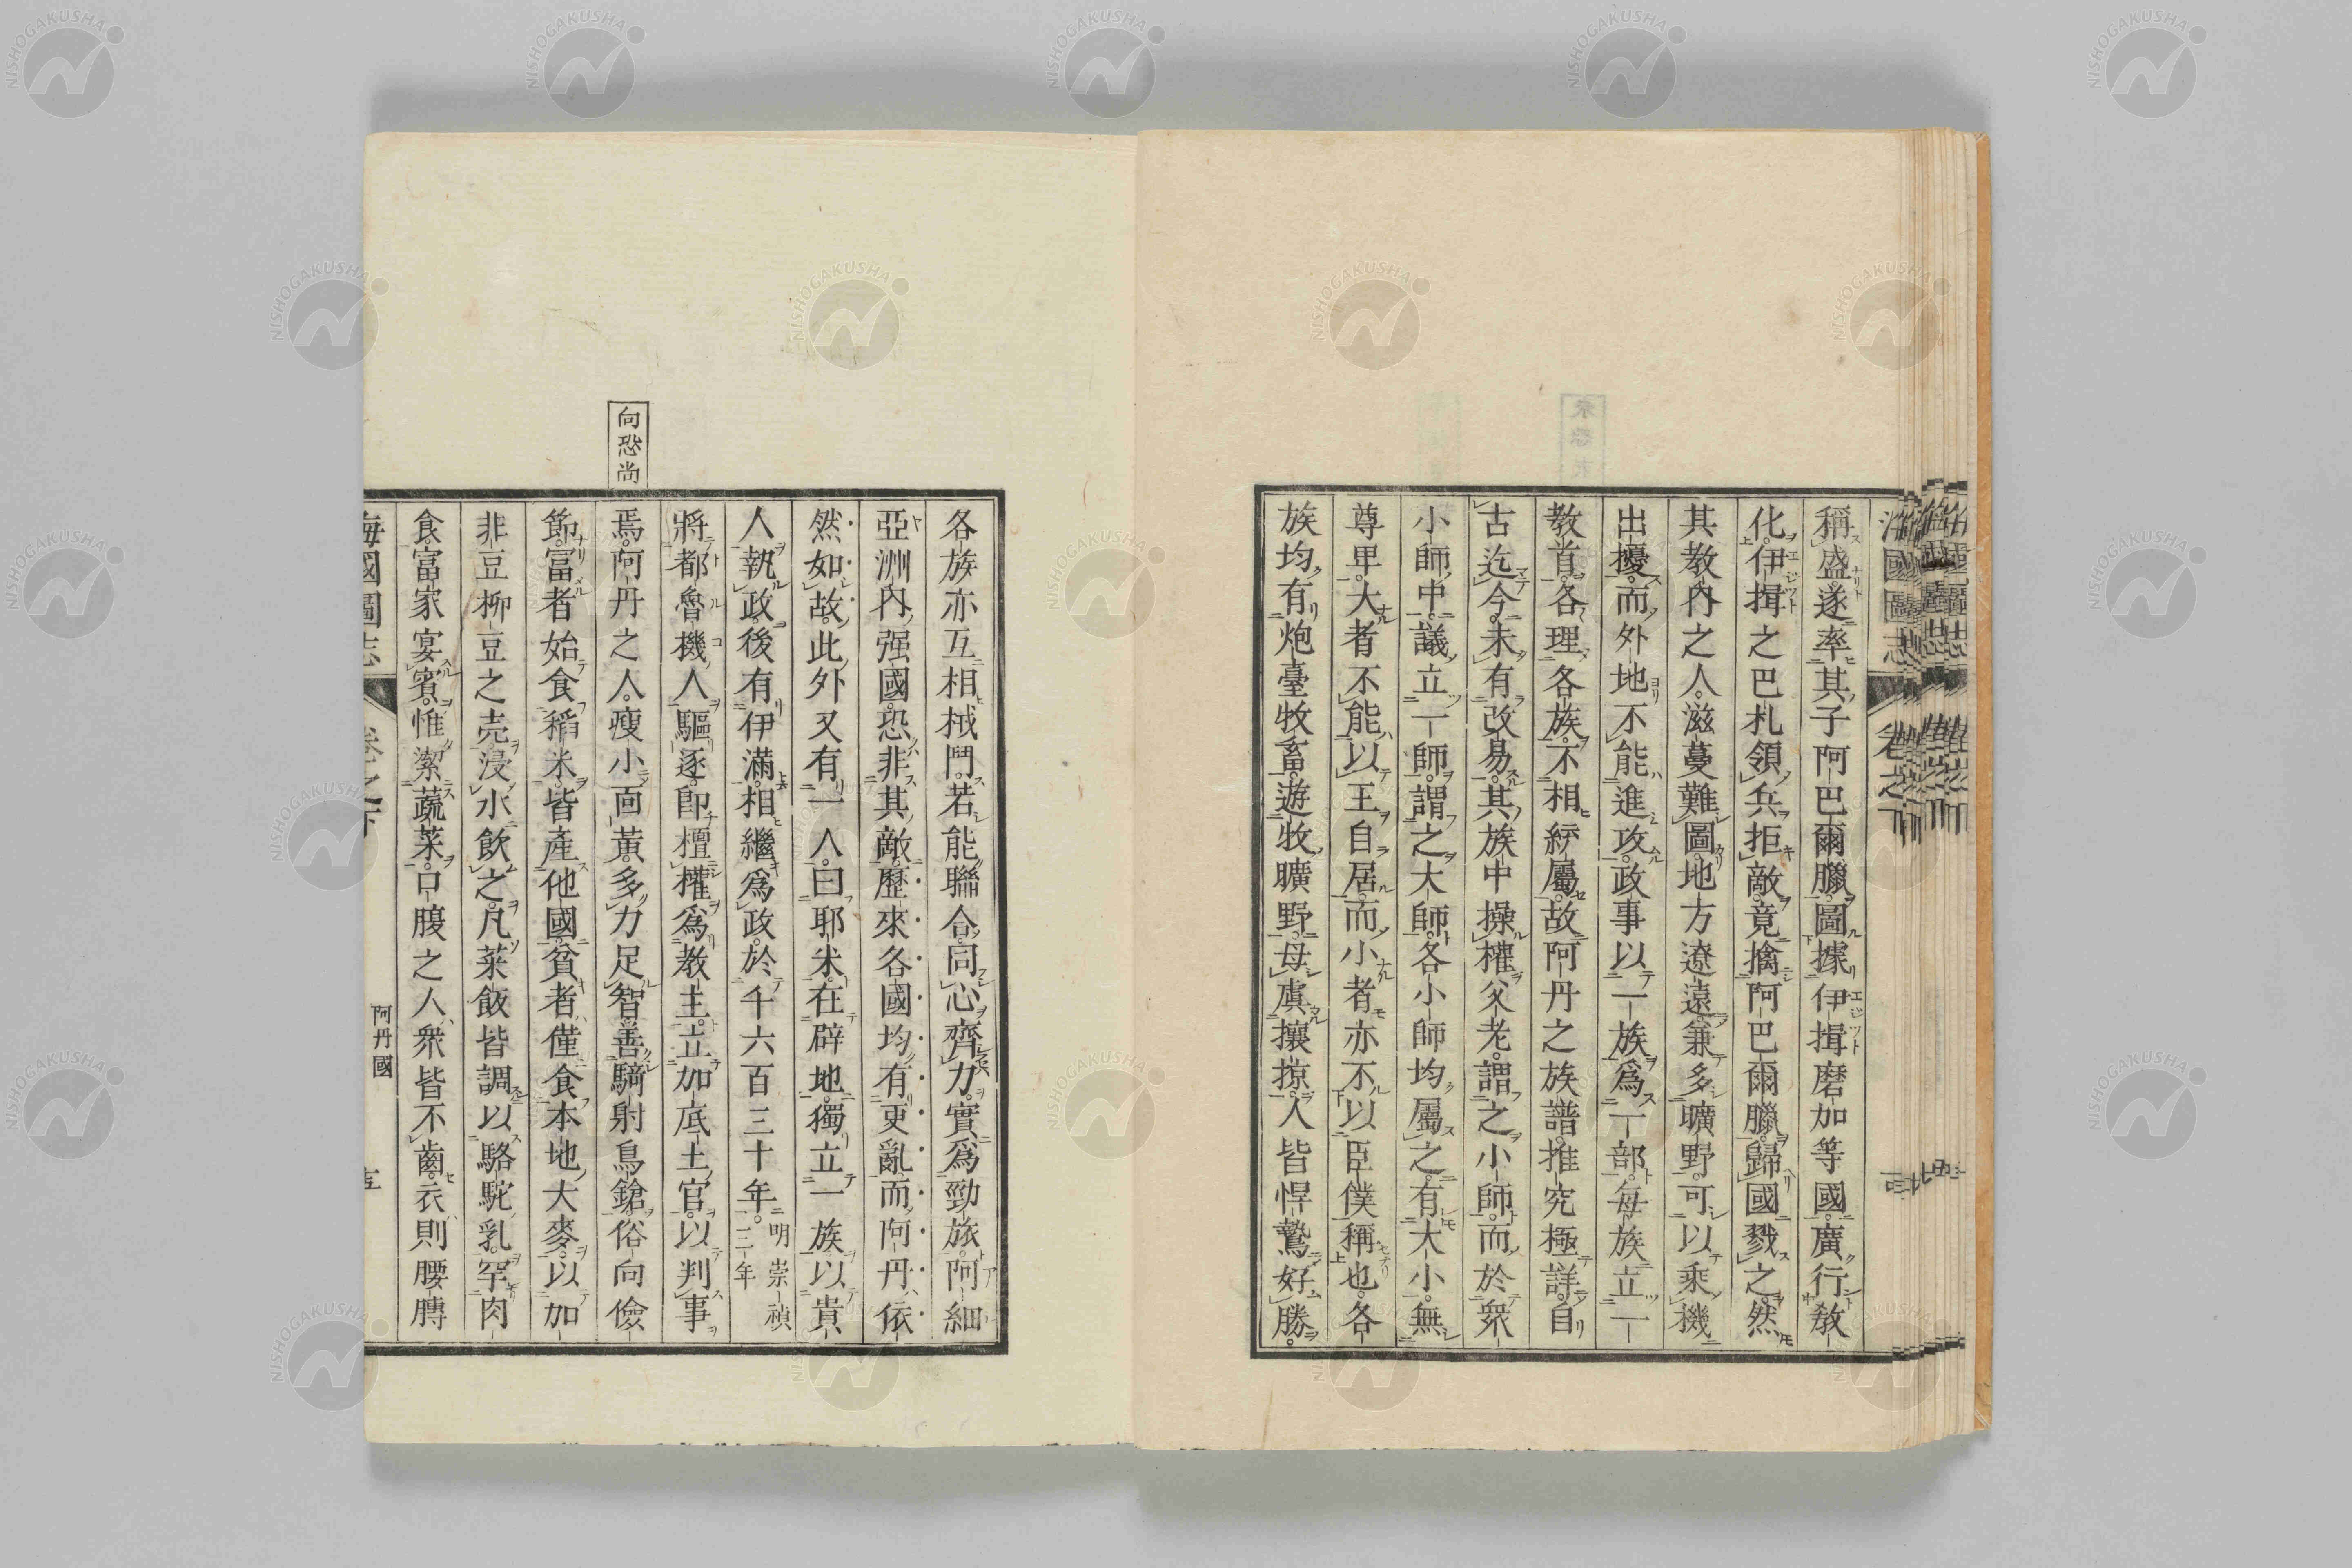 稱盛。遂率其子阿巴爾臘。圖據伊揖磨加等國。廣行敎
化。伊揖之巴札領兵拒敵。竟擒阿巴爾臘。歸國戮之。然
其教內之人。滋蔓難圖。地方遼遠。兼多曠野。可以乘機
出擾。而外地不能進攻。政事以一族爲一部。每族立一
教首。各理各族。不相統屬。故阿丹之族譜。推究極詳。自
古迄今。未有改易。其族中操權父老。謂之小師。而於衆
小師中。議立一師。謂之大師。各小師均屬之。有大小。無
尊卑。大者不能以王自居。而小者亦不以臣僕稱也。各
族均有炮臺牧畜。遊牧曠野。毋虞攘掠。人皆悍鷙好勝。
各族亦互相械鬥。若能聯合。同心齊力。實爲勁旅。阿細
亞洲內強國。恐非其敵。歷來各國均有更亂。而阿丹依
然如故。此外又有一人。曰耶米。在辟地。獨立一族。以貴
人執政。後有伊滿。相繼爲政。於千六百三十年。明崇禎
三年
將都魯機人驅逐。卽檀權爲教主。立加底土官。以判事
焉。阿丹之人。瘦小面黃。多力足智。善騎射鳥鎗。俗向儉
節。富者始食稻米。皆產他國。貧者僅食本地大麥。以加
非豆柳豆之壳浸水飲之。凡菜飯皆調以駱駝乳。罕肉
食。富家宴賓。惟潔蔬菜。口腹之人。衆皆不齒。衣則腰膊
向恐尚
海國圖志
卷之下
阿丹國
海國圖志
卷之下
NISHOGAKUSHA